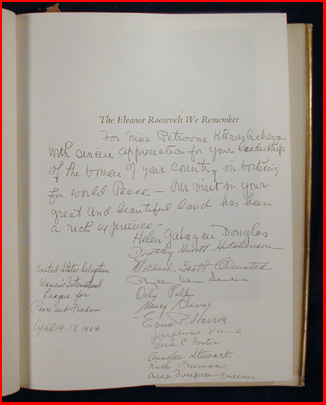 The Eleanor Roosevelt We Remember
For Nina Petrovna Khrushcheva
with sincere appreciation for your leadership
of the women of your country in working
for world Peace — Our visit in your
great and beautiful land has been
a rich experience —
Helen Gahagan Douglas
Dorothy Hutchinson
Mildred Scott Olmsted
Nancy Reeves
Erna P. Harris
C Foster
Annalee Stewart
Ruth Freeman
United States Delegation
Women's International
League for
Peace and Freedom
April 14-18, 1964